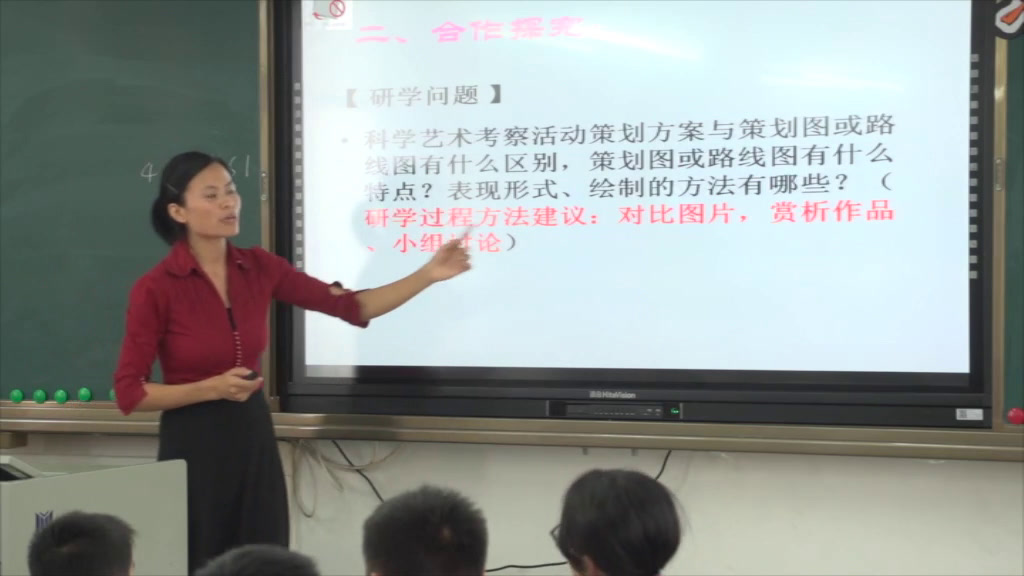 二、合作探究
【 研学问题 】
• 科学艺术考察活动策划方案与策划图或路
线图有什么区别，策划图或路线图有什么
特点？表现形式、绘制的方法有哪些？（
研学过程方法建议：对比图片，赏析作品
、小组讨论）
HiteVision